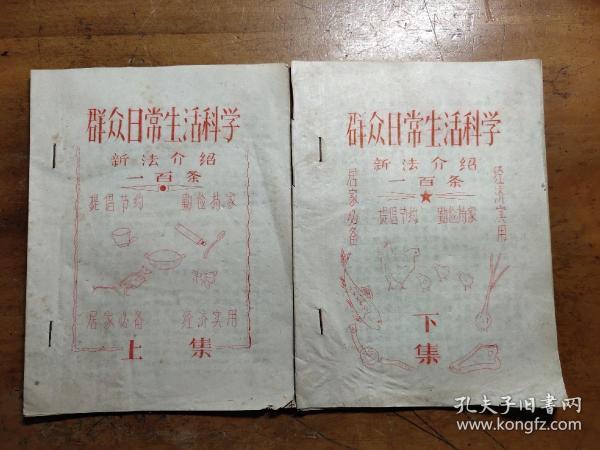 群众日常生活科学
新法介绍
一百条
提倡节约 勤俭持家
居家必备 经济实用
上集
群众日常生活科学
新法介绍
一百条
居家必备
经济实用
提倡节约 勤俭持家
下集
孔夫子旧书网
www.kongfz.com